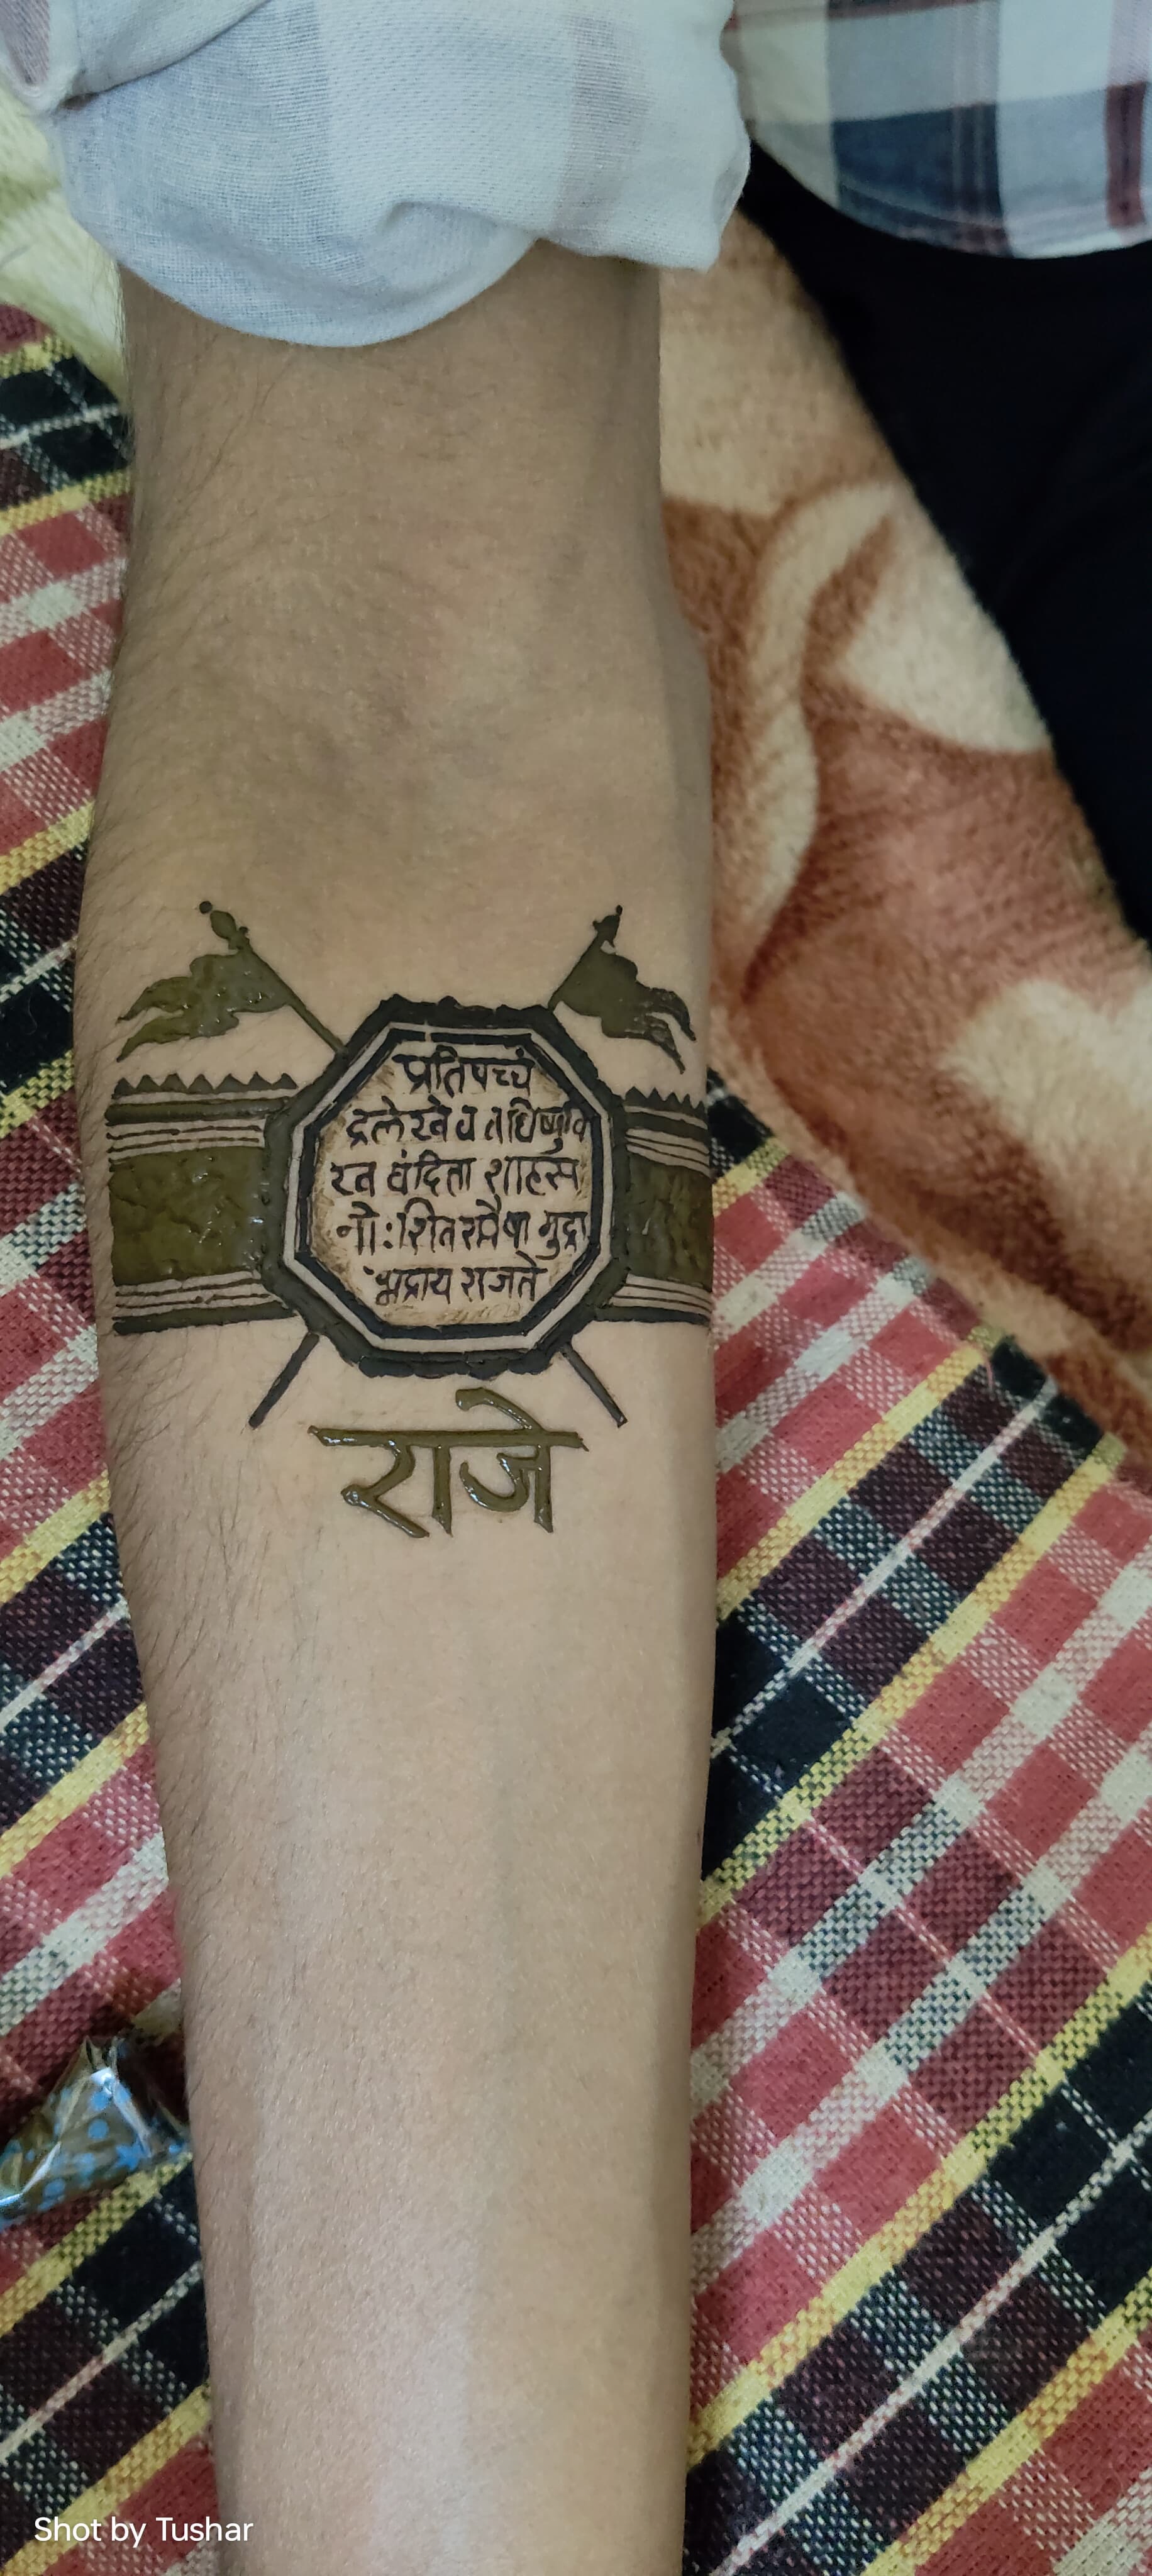 प्रतिपच्चं
द्रलेखेव वर्धिष्णुर्वि
श्व वंदिता शाहसू
नो:शिवस्यैषा मुद्रा
भद्राय राजते
राजे
Shot by Tushar